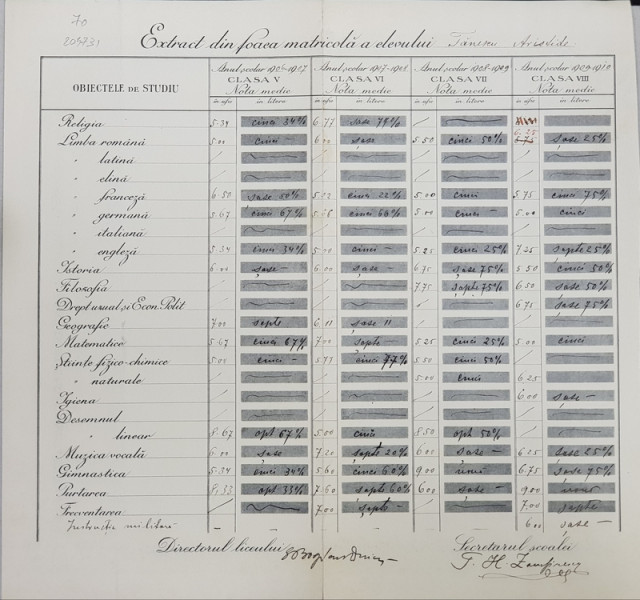 70
Extract din foaea matricolă a elevului Tănescu Aristide
OBIECTELE DE STUDIU
Anul școlar 1906-1907 Anul școlar 1907-1908 Anul școlar 1908-1909 Anul școlar 1909-1910
CLASA V CLASA VI CLASA VII CLASA VIII
Nota medie Nota medie Nota medie Nota medie
în cifre în litere în cifre în litere în cifre în litere în cifre în litere
Religia 5.34 cinci 34% 6.77 șase 77%
6.25
Limba română 5.00 cinci - șase 5.50 cinci 50% șase 25%
" latină
" elină
" franceză 6.50 șase 50% cinci 22% 5.00 cinci 5.75 cinci 75%
" germană 5.67 cinci 67% cinci 66% 5.00 cinci - 5.00 cinci
" italiană
" engleză 5.34 cinci 34% cinci - 5.25 cinci 25% 7.25 șapte 25%
Istoria 6.00 șase - 6.00 șase - 6.75 șase 75% 5.50 cinci 50%
Filosofia 7.75 șapte 75% 6.50 șase 50%
Drept uzual și Econ. Polit 6.75 șase 75%
Geografie 7.00 șapte 6.11 șase 11
Matematice 5.67 cinci 67% 7.00 șapte - 5.25 cinci 25% 5.00 cinci
Științe fizico-chimice 5.00 cinci - 5.77 cinci 77% 5.50 cinci 50%
" naturale 5.00 cinci 6.25
Igiena 6.00 șase -
Desemnul
" linear 8.67 opt 67% 5.00 cinci 8.50 opt 50%
Muzica vocală 6.00 șase 7.20 șapte 20% 6.00 șase - 6.25 șase 25%
Gimnastica 5.34 cinci 34% 5.60 cinci 60% 9.00 nouă 6.75 șase 75%
Purtarea 8.33 opt 33% 7.60 șapte 60% 6.00 șase - 9.00 nouă
Frecventarea 7.00 șapte - 7.00 șapte
Instrucția militară - - - - - - 6.00 șase -
Directorul liceului Secretarul școalei